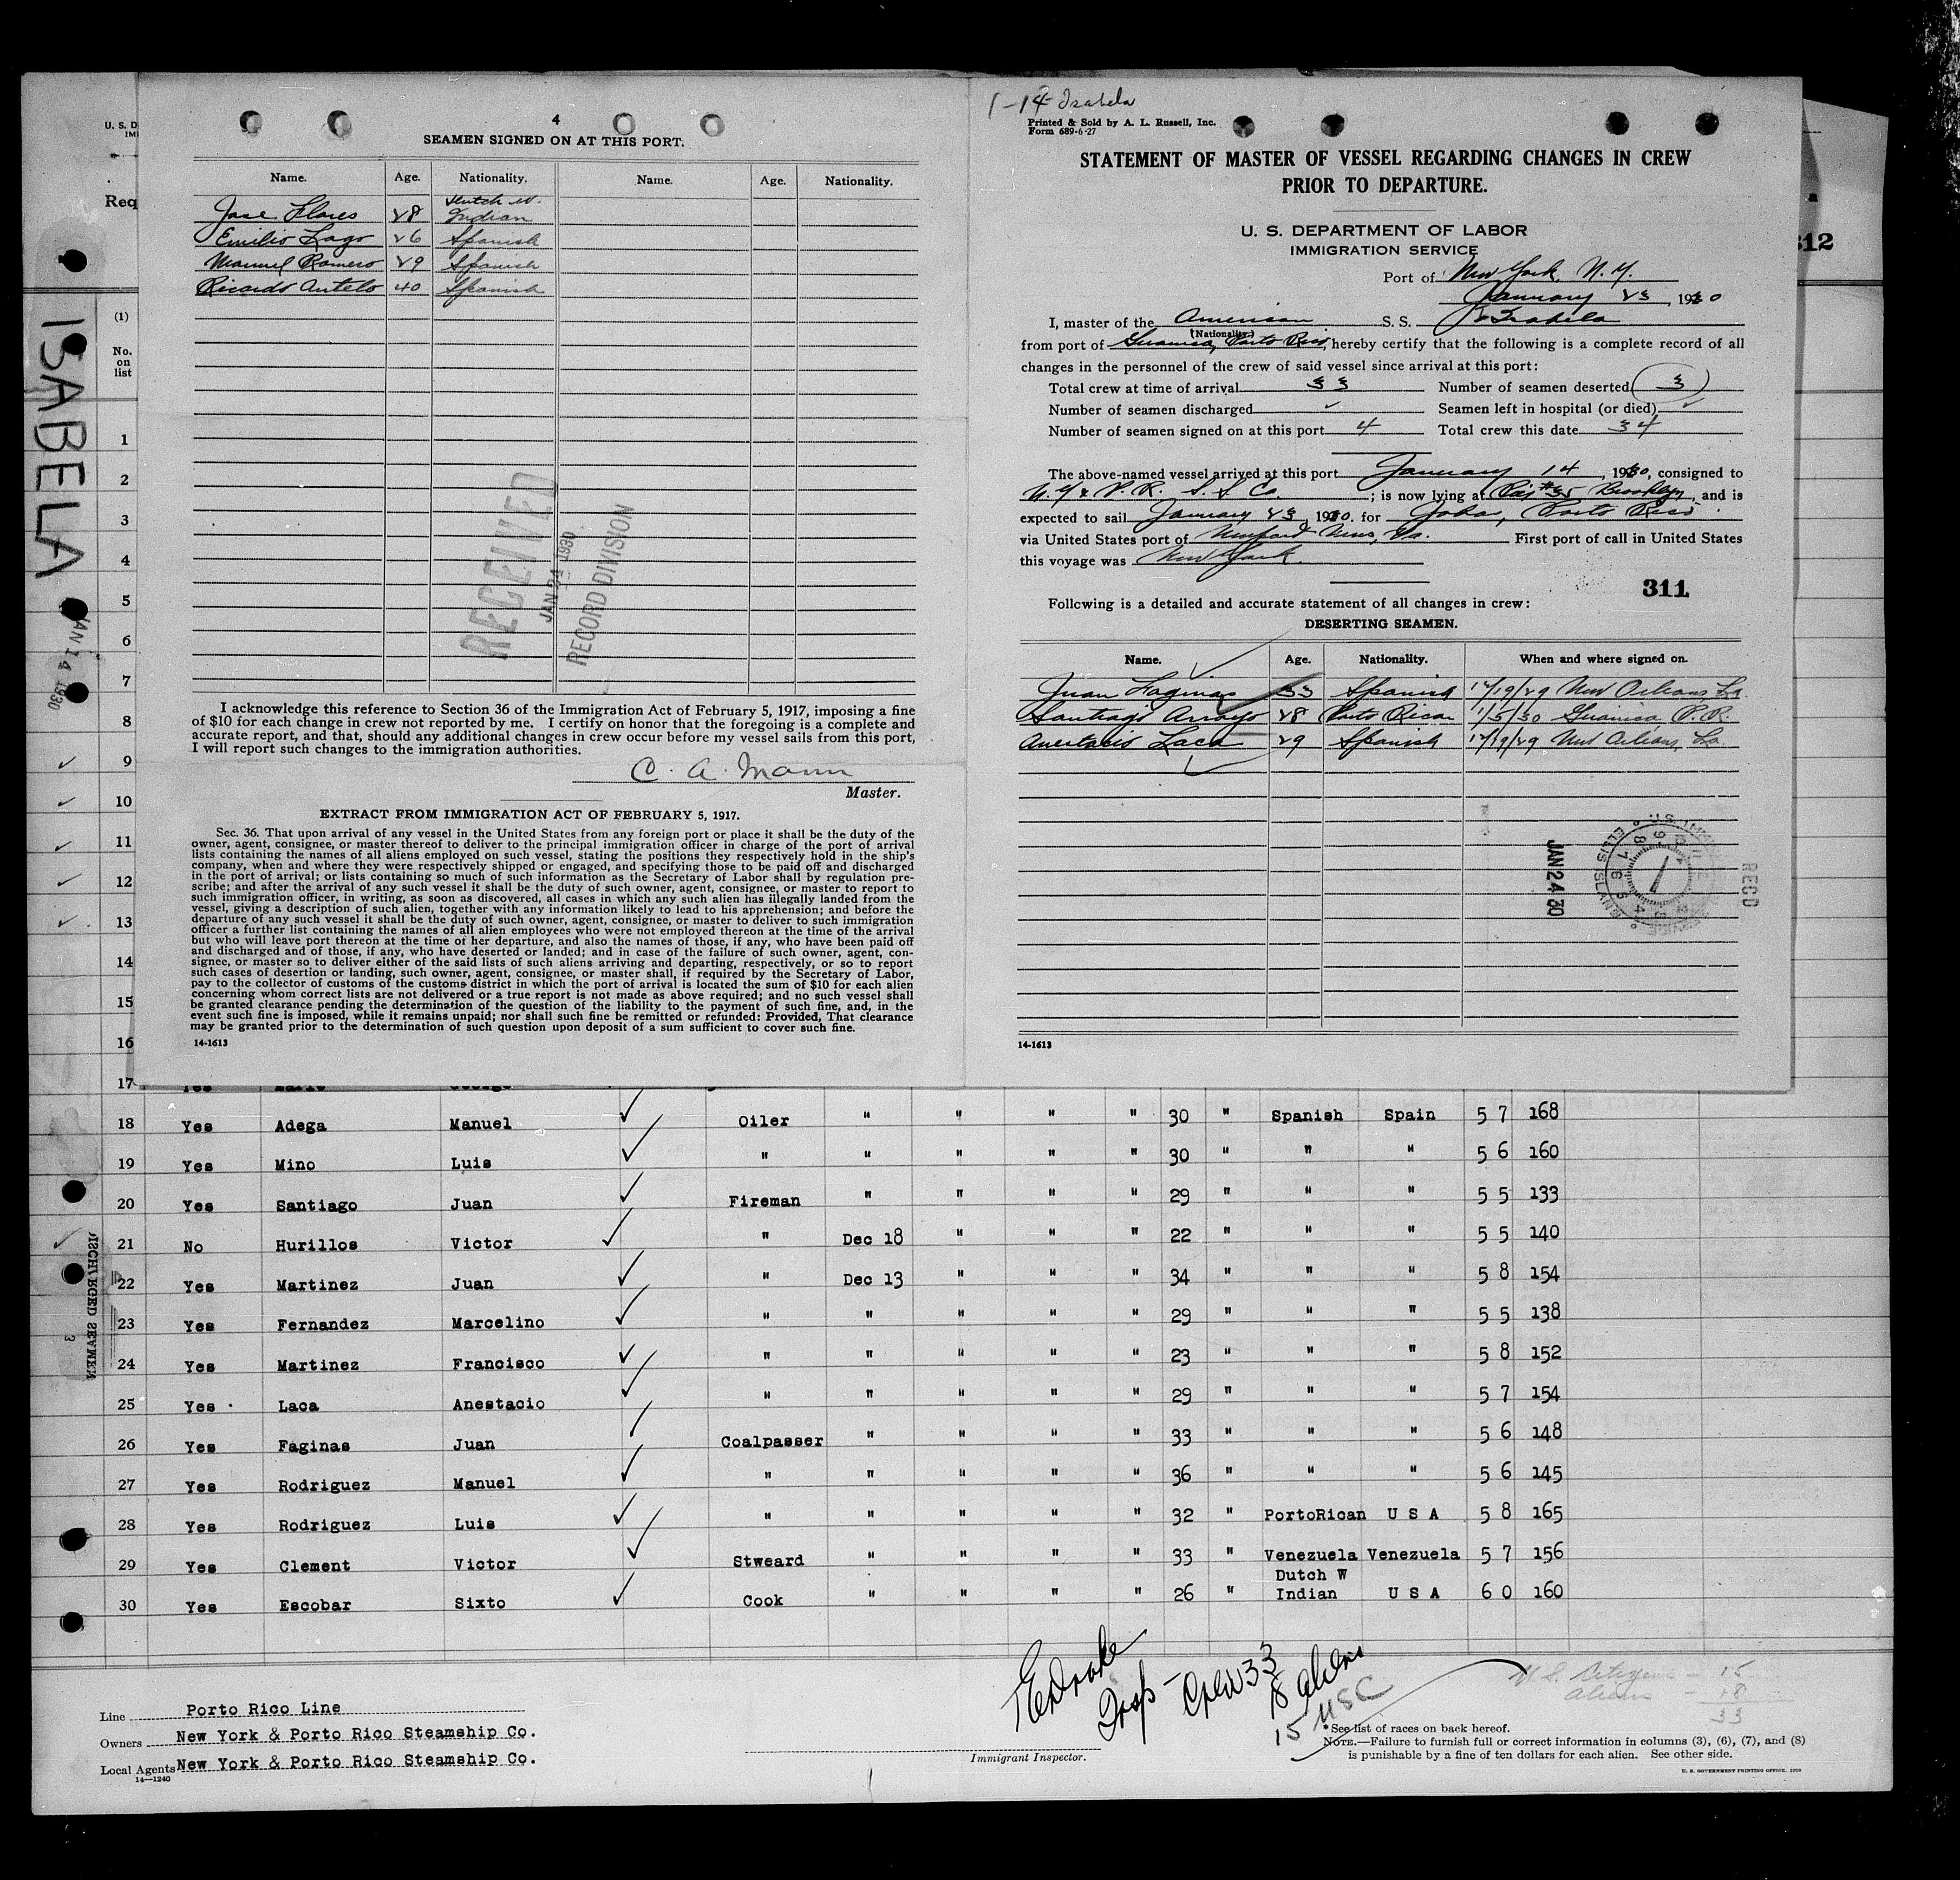 4
SEAMEN SIGNED ON AT THIS PORT.
Name. Age. Nationality. Name. Age. Nationality.
Jose Flores 28 Dutch W. Indian
Emilio Lago 26 Spanish
Manuel Romero 29 Spanish
Ricardo Antelo 40 Spanish
RECEIVED
JAN 24 1930
RECORD DIVISION
I acknowledge this reference to Section 36 of the Immigration Act of February 5, 1917, imposing a fine
of $10 for each change in crew not reported by me. I certify on honor that the foregoing is a complete and
accurate report, and that, should any additional changes in crew occur before my vessel sails from this port,
I will report such changes to the immigration authorities.
C. A. Mann
Master.
EXTRACT FROM IMMIGRATION ACT OF FEBRUARY 5, 1917.
Sec. 36. That upon arrival of any vessel in the United States from any foreign port or place it shall be the duty of the
owner, agent, consignee, or master thereof to deliver to the principal immigration officer in charge of the port of arrival
lists containing the names of all aliens employed on such vessel, stating the positions they respectively hold in the ship's
company, when and where they were respectively shipped or engaged, and specifying those to be paid off and discharged
in the port of arrival; or lists containing so much of such information as the Secretary of Labor shall by regulation pre-
scribe; and after the arrival of any such vessel it shall be the duty of such owner, agent, consignee, or master to report to
such immigration officer, in writing, as soon as discovered, all cases in which any such alien has illegally landed from the
vessel, giving a description of such alien, together with any information likely to lead to his apprehension; and before the
departure of any such vessel it shall be the duty of such owner, agent, consignee, or master to deliver to such immigration
officer a further list containing the names of all alien employees who were not employed thereon at the time of the arrival
but who will leave port thereon at the time of her departure, and also the names of those, if any, who have been paid off
and discharged and of those, if any, who have deserted or landed; and in case of the failure of such owner, agent, con-
signee, or master so to deliver either of the said lists of such aliens arriving and departing, respectively, or so to report
such cases of desertion or landing, such owner, agent, consignee, or master shall, if required by the Secretary of Labor,
pay to the collector of customs of the customs district in which the port of arrival is located the sum of $10 for each alien
concerning whom correct lists are not delivered or a true report is not made as above required; and no such vessel shall
be granted clearance pending the determination of the question of the liability to the payment of such fine, and, in the
event such fine is imposed, while it remains unpaid; nor shall such fine be remitted or refunded: Provided, That clearance
may be granted prior to the determination of such question upon deposit of a sum sufficient to cover such fine.
14-1613
1-14 Isabela
Printed & Sold by A. L. Russell, Inc.
Form 689-6-27
STATEMENT OF MASTER OF VESSEL REGARDING CHANGES IN CREW
PRIOR TO DEPARTURE.
U. S. DEPARTMENT OF LABOR
IMMIGRATION SERVICE
Port of New York, N. Y.
January 23, 1930
I, master of the American S. S. Isabela
(Nationality.)
from port of Guanica, Porto Rico, hereby certify that the following is a complete record of all
changes in the personnel of the crew of said vessel since arrival at this port:
Total crew at time of arrival 33 Number of seamen deserted 3
Number of seamen discharged Seamen left in hospital (or died)
Number of seamen signed on at this port 4 Total crew this date 34
The above-named vessel arrived at this port January 14, 1930, consigned to
N. Y. & P. R. S. S. Co.; is now lying at Pier #35 Brooklyn, and is
expected to sail January 23, 1930. for Jobos, Porto Rico.
via United States port of Newport News, Va. First port of call in United States
this voyage was New York.
311
Following is a detailed and accurate statement of all changes in crew:
DESERTING SEAMEN.
Name. Age. Nationality. When and where signed on.
Juan Faginas 33 Spanish 12/19/29 New Orleans, La.
Santiago Arroyo 28 Porto Rican 1/5/30 Guanica P. R.
Anestacio Laca 29 Spanish 12/19/29 New Orleans, La.
JAN 24 30
REC'D
ELLIS ISLAND
14-1613
312
U. S. D
Req
ISABELA
JAN 14 1930
(1)
No. on list
1
2
3
4
5
6
7
8
9
10
11
12
13
14
15
16
17 Yes
18 Yes Adega Manuel Oiler " " " " 30 " Spanish Spain 5 7 168
19 Yes Mino Luis " " " " " 30 " " " 5 6 160
20 Yes Santiago Juan Fireman " " " " 29 " " " 5 5 133
21 No Hurillos Victor " Dec 18 " " " 22 " " " 5 5 140
22 Yes Martinez Juan " Dec 13 " " " 34 " " " 5 8 154
23 Yes Fernandez Marcelino " " " " " 29 " " " 5 5 138
24 Yes Martinez Francisco " " " " " 23 " " " 5 8 152
25 Yes Laca Anestacio " " " " " 29 " " " 5 7 154
26 Yes Faginas Juan Coalpasser " " " " 33 " " " 5 6 148
27 Yes Rodriguez Manuel " " " " " 36 " " " 5 6 145
28 Yes Rodriguez Luis " " " " " 32 " PortoRican U S A 5 8 165
29 Yes Clement Victor Stweard " " " " 33 " Venezuela Venezuela 5 7 156
30 Yes Escobar Sixto Cook " " " " 26 " Dutch W Indian U S A 6 0 160
Line Porto Rico Line
Owners New York & Porto Rico Steamship Co.
Local Agents New York & Porto Rico Steamship Co.
14—1240
EDrake
Insp - Crew 33
18 aliens
15 USC
Immigrant Inspector.
U.S. Citizens - 15
Aliens - 18
33
*See list of races on back hereof.
NOTE.—Failure to furnish full or correct information in columns (3), (6), (7), and (8)
is punishable by a fine of ten dollars for each alien. See other side.
U. S. GOVERNMENT PRINTING OFFICE. 1929